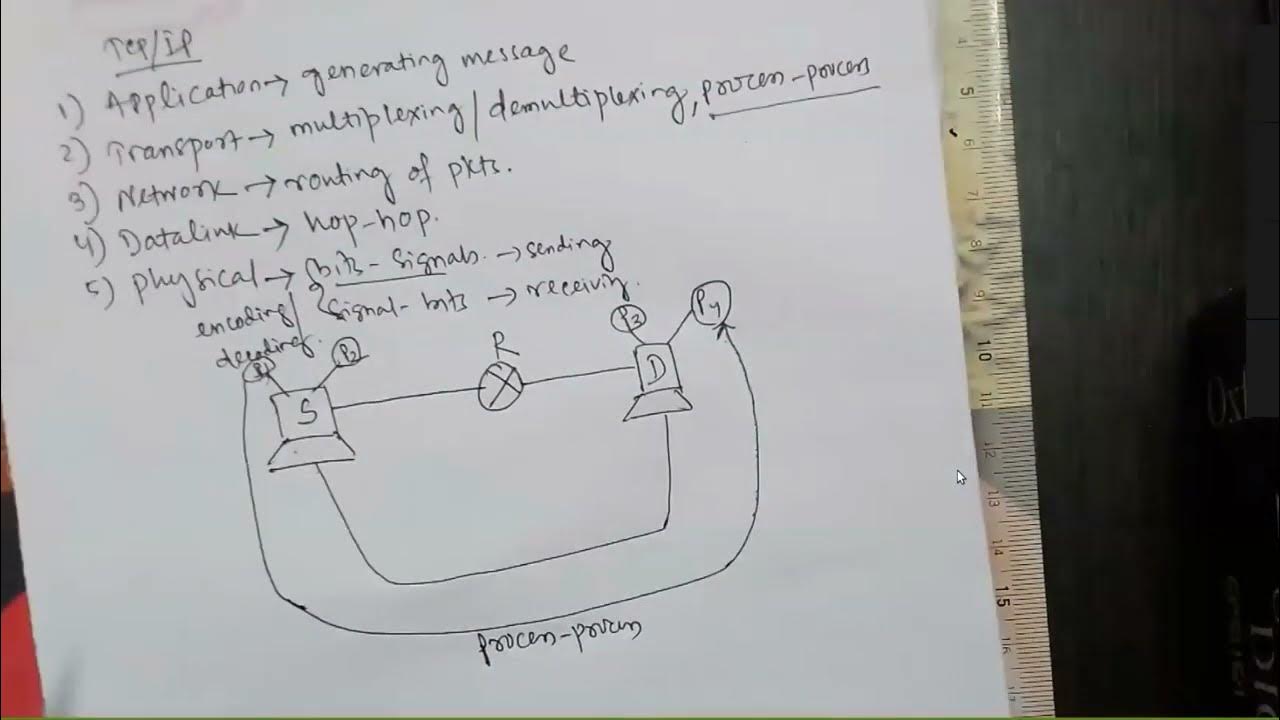 TCP/IP
1) Application → generating message
2) Transport → multiplexing/demultiplexing, process-process
3) Network → routing of pkts.
4) Datalink → hop-hop.
5) Physical → bits - signals. → sending
encoding/ signal - bits → receiving.
decoding.
P1
P2
R
P3
P4
S
D
process-process
4
5
6
7
8
9
10
11
12
13
14
15
16
Oxf